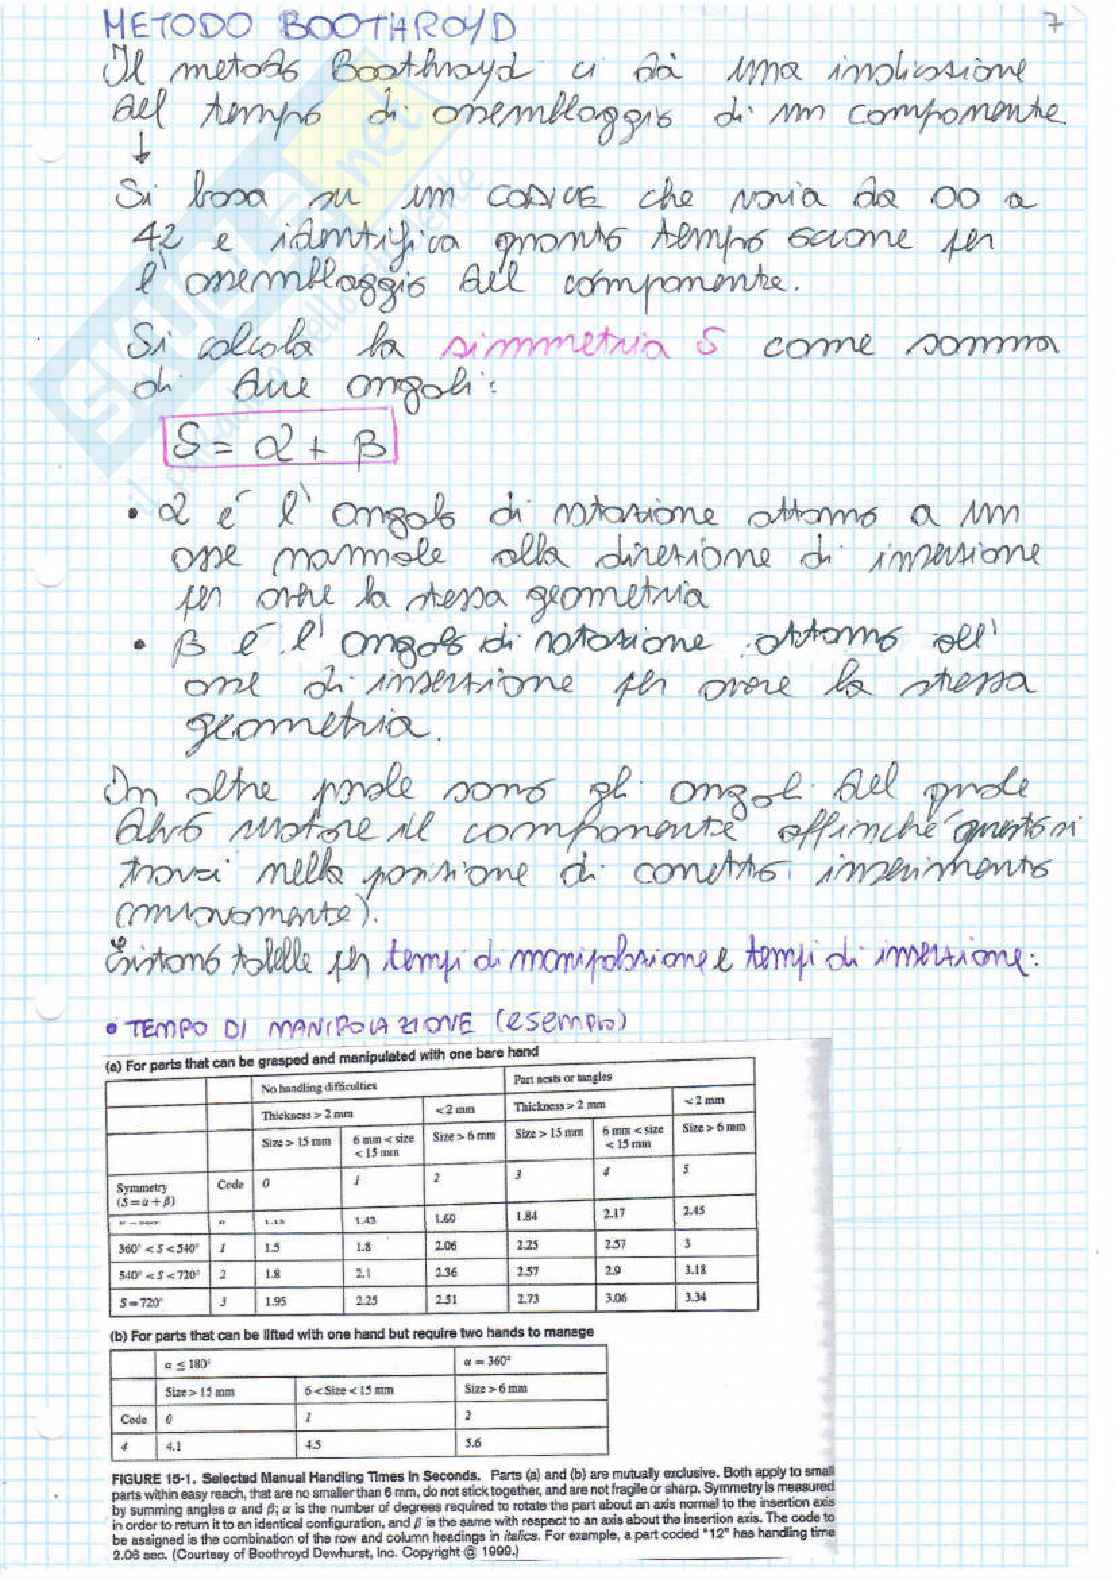 METODO BOOTHROYD
7
Il metodo Boothroyd ci dà una indicazione
del tempo di assemblaggio di un componente
↓
Si basa su un CODICE che varia da 00 a
42 e identifica quanto tempo occorre per
l'assemblaggio del componente.
Si calcola la simmetria S come somma
di due angoli:
S = α + β
• α é l'angolo di rotazione attorno a un
asse normale alla direzione di inserzione
per avere la stessa geometria
• β é l'angolo di rotazione attorno all'
asse di inserzione per avere la stessa
geometria.
In altre parole sono gli angoli del quale
devo ruotare il componente affinché questo si
trovi nella posizione di corretto inserimento
(nuovamente).
Esistono tabelle per tempi di manipolazione e tempi di inserzione:
• TEMPO DI MANIPOLAZIONE (esempio)
(a) For parts that can be grasped and manipulated with one bare hand
No handling difficulties Part nests or tangles
Thickness > 2 mm <2 mm Thickness > 2 mm <2 mm
Size > 15 mm 6 mm < size < 15 mm Size > 6 mm Size > 15 mm 6 mm < size < 15 mm Size > 6 mm
Symmetry (S = α + β) Code 0 1 2 3 4 5
0 1.13 1.43 1.69 1.84 2.17 2.45
360° < S < 540° 1 1.5 1.8 2.06 2.25 2.57 3
540° < S < 720° 2 1.8 2.1 2.36 2.57 2.9 3.18
S = 720° 3 1.95 2.25 2.51 2.73 3.06 3.34
(b) For parts that can be lifted with one hand but require two hands to manage
α ≤ 180° α = 360°
Size > 15 mm 6 < Size < 15 mm Size > 6 mm
Code 0 1 2
4 4.1 4.5 5.6
FIGURE 15-1. Selected Manual Handling Times in Seconds. Parts (a) and (b) are mutually exclusive. Both apply to small
parts within easy reach, that are no smaller than 6 mm, do not stick together, and are not fragile or sharp. Symmetry is measured
by summing angles α and β; α is the number of degrees required to rotate the part about an axis normal to the insertion axis
in order to return it to an identical configuration, and β is the same with respect to an axis about the insertion axis. The code to
be assigned is the combination of the row and column headings in italics. For example, a part coded "12" has handling time
2.06 sec. (Courtesy of Boothroyd Dewhurst, Inc. Copyright @ 1999.)